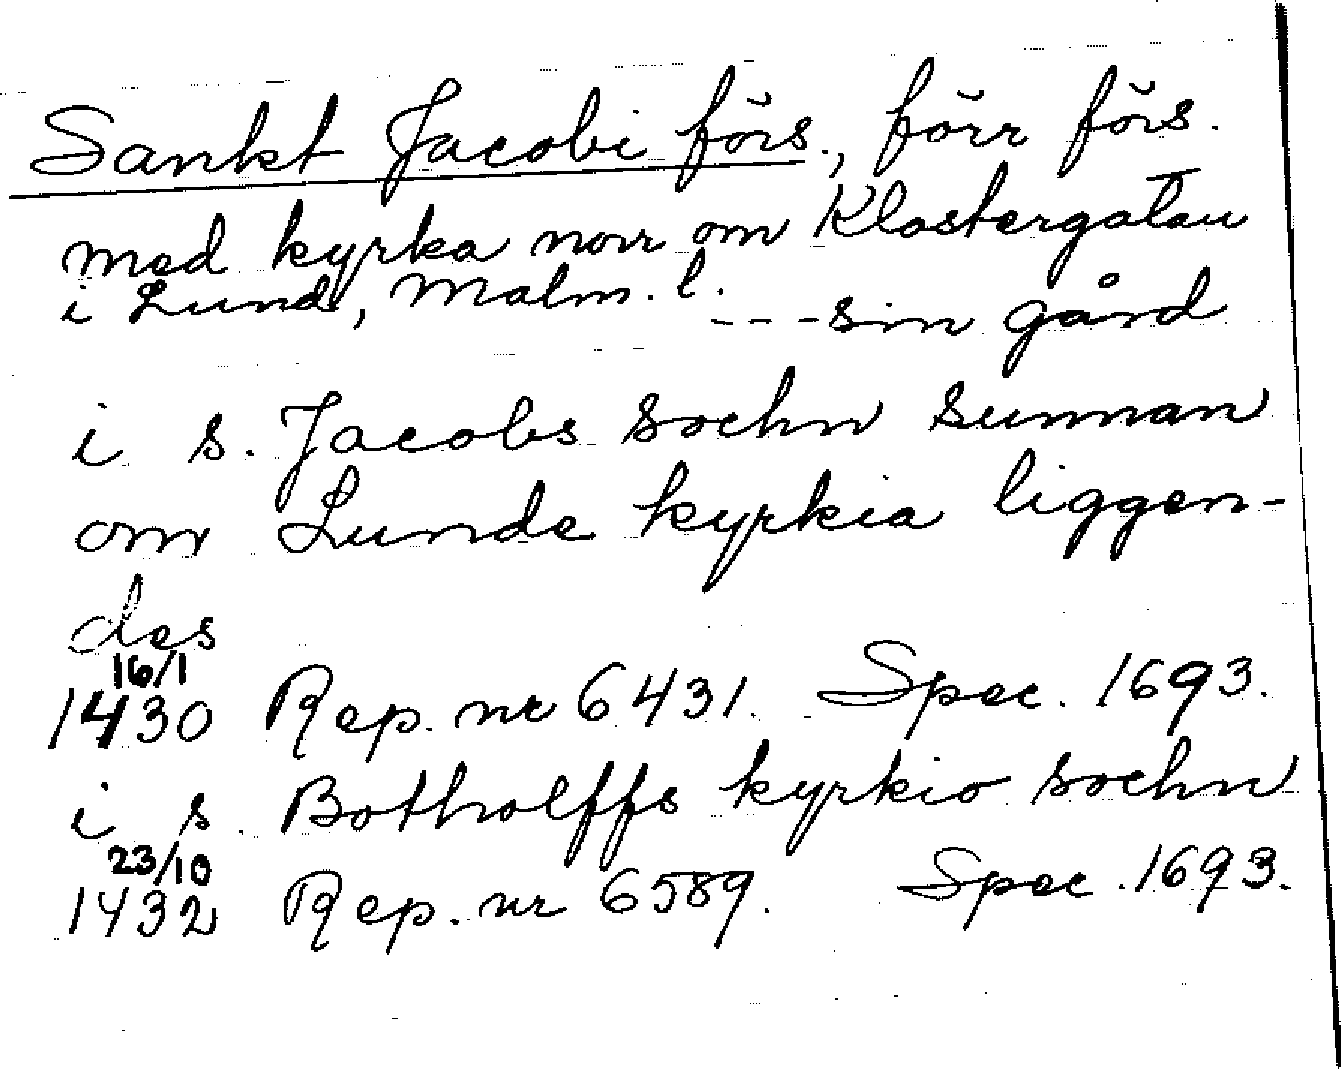 Sankt Jacobi förs., förr förs.
med kyrka norr om Klostergatan
i Lund, Malm. l.
- - - sin gård
i s. Jacobs sochn sunnan
om Lunde kyrkia liggen-
des
16/1
1430 Rep. nr 6431. Spec. 1693.
i s. Botholffs kyrkio sochn
23/10
1432 Rep. nr 6589. Spec. 1693.